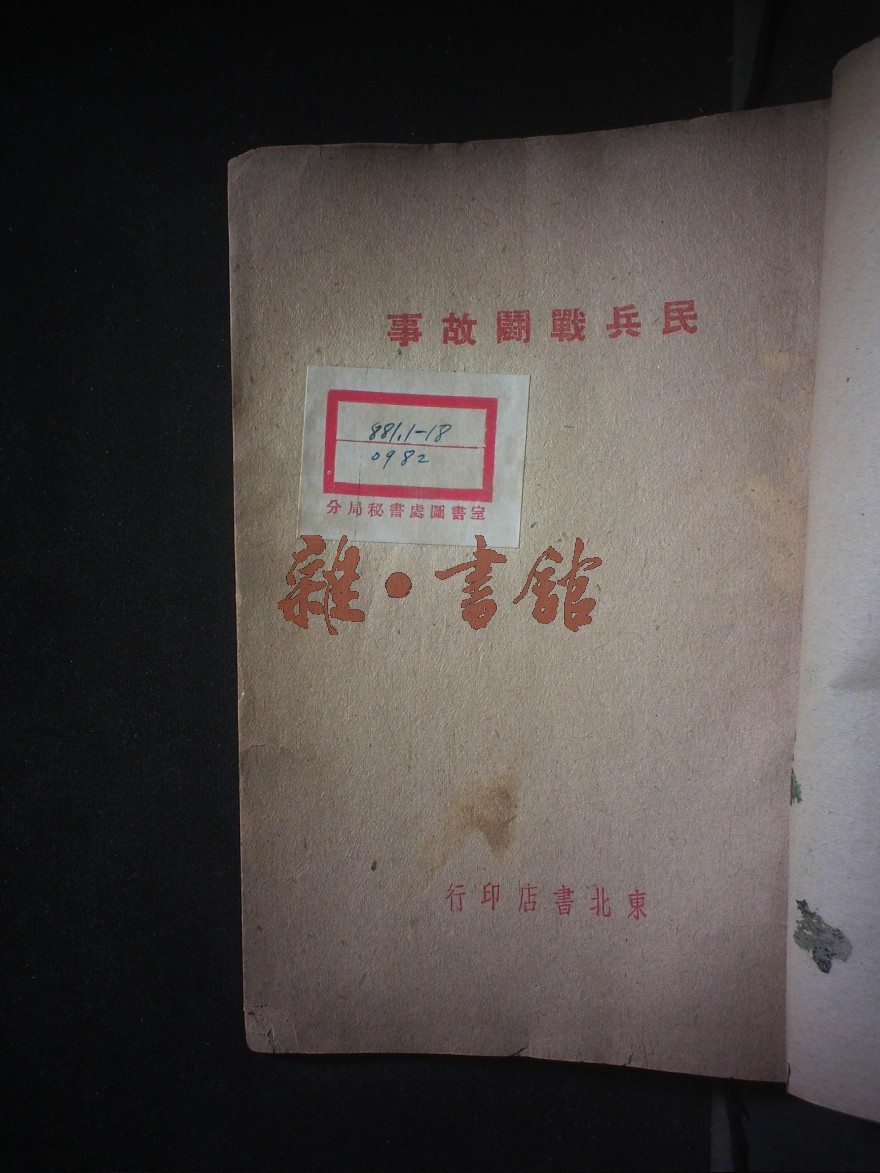 民兵戰鬪故事
881.1-18
0982
分局秘書處圖書室
雜·書館
東北書店印行